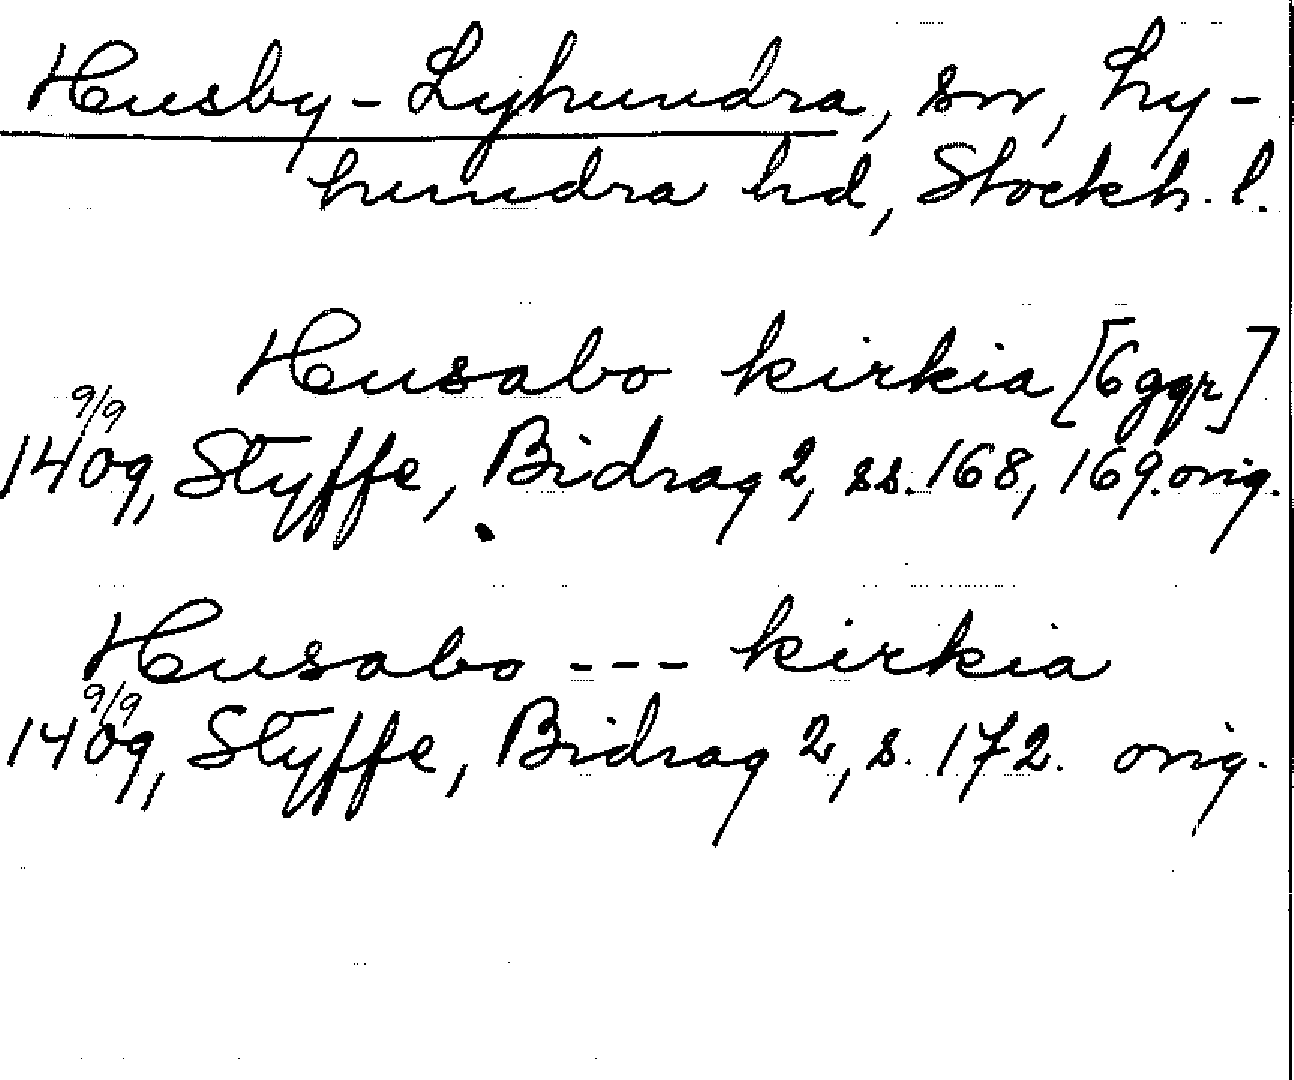 Husby-Lyhundra, sn, Ly-
hundra hd, Stockh. l.
Husabo kirkia [6 ggr]
9/9
1409, Styffe, Bidrag 2, ss. 168, 169. orig.
Husabo --- kirkia
9/9
1409, Styffe, Bidrag 2, s. 172. orig.